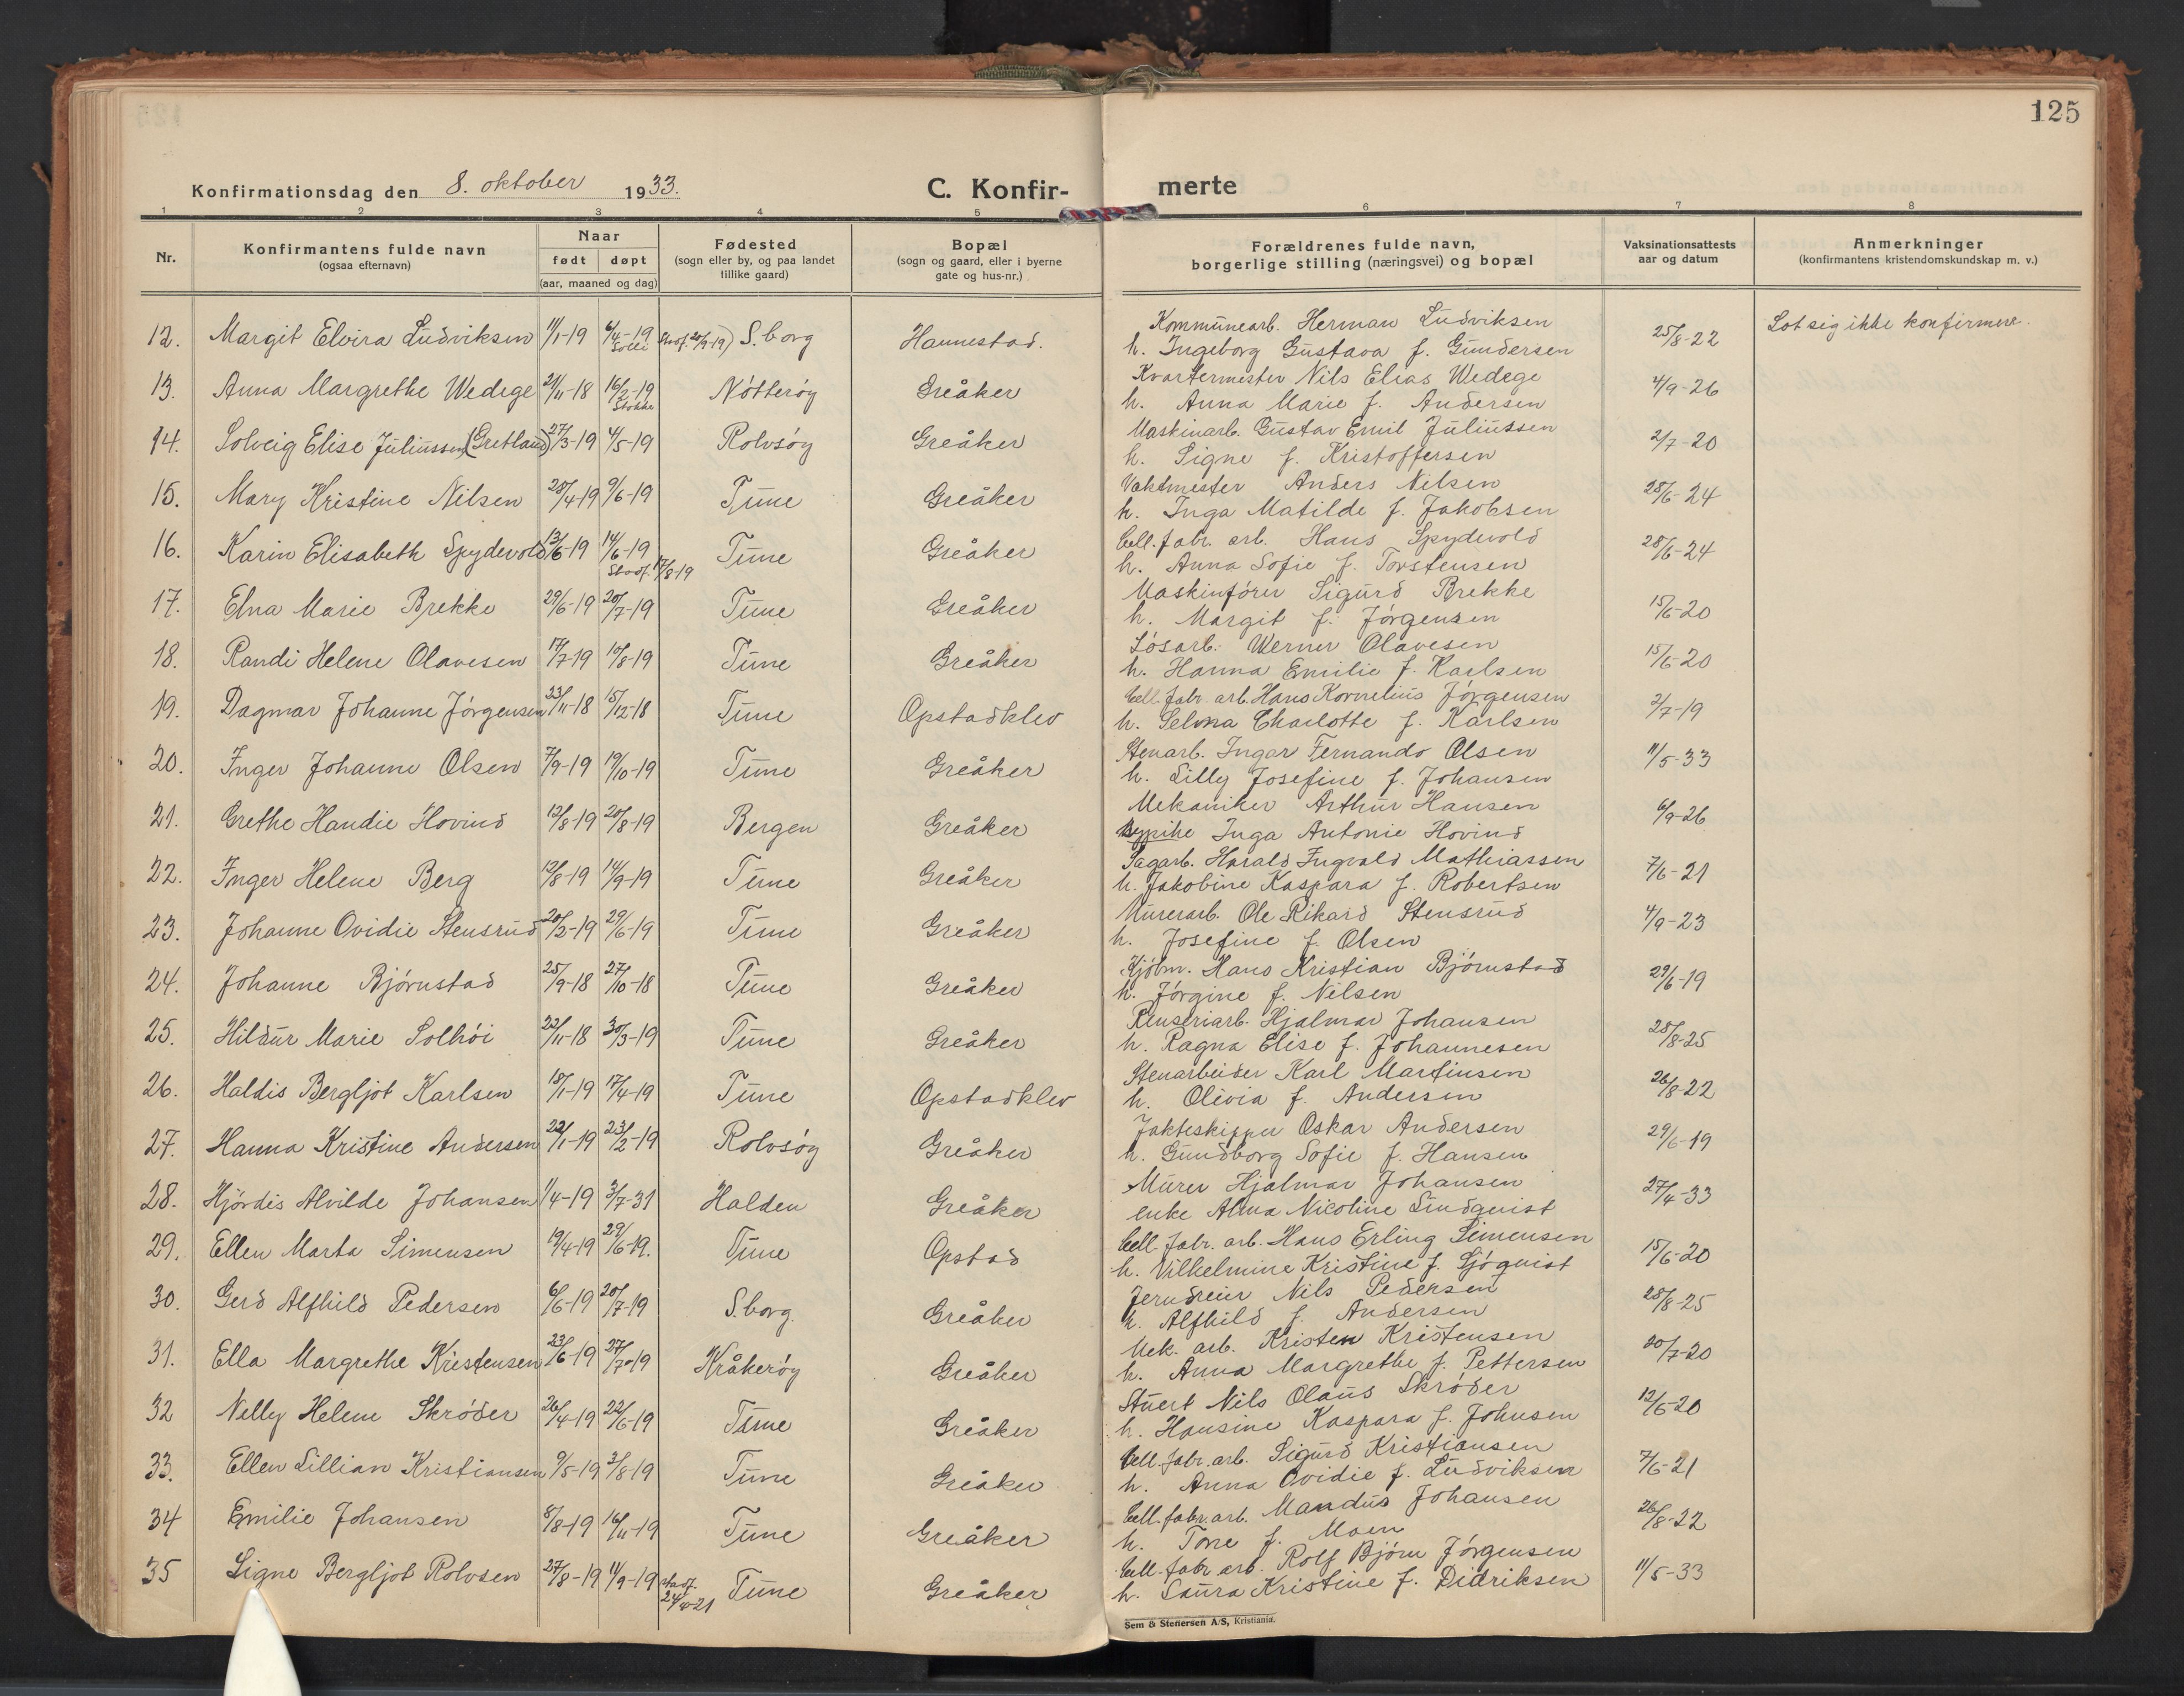 125
Konfirmationsdag den 8. oktober 1933.
C. Konfir-merte
1 2 3 4 5 6 7 8
Nr.
Konfirmantens fulde navn
(ogsaa efternavn)
Naar
født døpt
(aar, maaned og dag)
Fødested
(sogn eller by, og paa landet
tillike gaard)
Bopæl
(sogn og gaard, eller i byerne
gate og hus-nr.)
Forældrenes fulde navn,
borgerlige stilling (næringsvei) og bopæl
Vaksinationsattests
aar og datum
Anmerkninger
(konfirmantens kristendomskundskap m. v.)
12. Margit Elvira Ludviksen 11/1-19 6/4-19 Solli Stadf. 20/9-19) S.borg Hannestad. Kommunearb. Herman Ludviksen 25/8-22 Lot sig ikke konfirmere.
h. Ingeborg Gustava f. Gundersen
13. Anna Margrethe Wedege 21/11-18 16/2-19 Stokke Nötteröy Greåker Kvartermester Nils Elias Wedege 4/9-26
h. Anna Marie f. Andersen
14. Solveig Elise Juliussen (Gretland) 27/3-19 4/5-19 Rolvsöy Greåker Maskinarb. Gustav Emil Juliussen 2/7-20
h. Signe f. Kristoffersen
15. Mary Kristine Nilsen 28/4-19 9/6-19 Tune Greåker Vaktmester Anders Nilsen 28/6-24
h. Inga Matilde f. Jakobsen
16. Karin Elisabeth Spydevold 13/6-19 14/6-19 Stadf. 17/8-19 Tune Greåker Cell. fabr. arb. Hans Spydevold 28/6-24
h. Anna Sofie f. Torstensen
17. Elna Marie Brekke 29/6-19 20/7-19 Tune Greåker Maskinförer Sigurd Brekke 15/6-20
h. Margit f. Jörgensen
18. Randi Helene Olavesen 17/7-19 10/8-19 Tune Greåker Lösarb. Werner Olavesen 15/6-20
h. Hanna Emilie f. Karlsen
19. Dagmar Johanne Jörgensen 23/11-18 15/12-18 Tune Opstadklev Cell. fabr. arb. Hans Kornelius Jörgensen 2/7-19
h. Selma Charlotte f. Karlsen
20. Inger Johanne Olsen 7/9-19 19/10-19 Tune Greåker Stenarb. Ingar Fernando Olsen 11/5-33
h. Lilly Josefine f. Johansen
21. Grethe Handie Hovind 12/8-19 20/8-19 Bergen Greåker Mekaniker Arthur Hansen 6/9-26
Inga Antonie Hovind
22. Inger Helene Berg 13/8-19 14/9-19 Tune Greåker Sagarb. Harald Ingvald Mathiassen 7/6-21
h. Jakobine Kaspara f. Robertsen
23. Johanne Ovidie Stensrud 20/2-19 29/6-19 Tune Greåker Murerarb. Ole Rikard Stensrud 4/9-23
h. Josefine f. Olsen
24. Johanne Björnstad 25/9-18 27/10-18 Tune Greåker Kjöbm. Hans Kristian Björnstad 29/6-19
h. Jörgine f. Nilsen
25. Hildur Marie Solhöi 22/11-18 30/3-19 Tune Greåker Renseriarb. Hjalmar Johansen 28/8-25
h. Ragna Elise f. Johannesen
26. Haldis Bergljot Karlsen 18/1-19 17/4-19 Tune Opstadklev Stenarbeider Karl Martinsen 26/8-22
h. Olivia f. Andersen
27. Hanna Kristine Andersen 22/1-19 23/2-19 Rolvsöy Greåker Jakteskipper Oskar Andersen 29/6-19
h. Gundborg Sofie f. Hansen
28. Hjördis Alvilde Johansen 1/4-19 3/7-31 Halden Greåker Murer Hjalmar Johansen 27/4-33
enke Alma Nicoline Lindquist
29. Ellen Marta Simensen 19/4-19 29/6-19. Tune Opstad Cell. fabr. arb. Hans Erling Simensen 15/6-20
h. Vilhelmine Kristine f. Sjöquist
30. Gerd Alfhild Pedersen 6/6-19 20/7-19 S.borg. Greåker Jerndreier Nils Pedersen 28/8-25
h. Alfhild f. Andersen
31. Ella Margrethe Kristensen 23/6-19 27/7-19 Kråkeröy Greåker Mek. arb. Kristen Kristensen 20/7-20
h. Anna Margrethe f. Pettersen
32 Nelly Helene Skröder 26/4-19 22/6-19 Tune Greåker Stuert Nils Olaus Skröder 12/6-20
h. Hansine Kaspara f. Johnsen
33. Ellen Lillian Kristiansen 9/5-19 3/8-19 Tune Greåker Cell. fabr. arb. Sigurd Kristiansen 7/6-21
h. Anna Ovidie f. Ludviksen
34 Emilie Johansen 8/8-19 16/11-19 Tune Greåker Cell. fabr. arb. Mandus Johansen 26/8-22
h. Tove f. Moen
35 Signe Bergljot Rolvsen 27/8-19 11/9-19 stadf. 24/4-21 Tune Greåker Cell. fabr. arb. Rolf Björn Jörgensen 11/5-33
h. Laura Kristine f. Didriksen
Sem & Stenersen A/S, Kristiania.